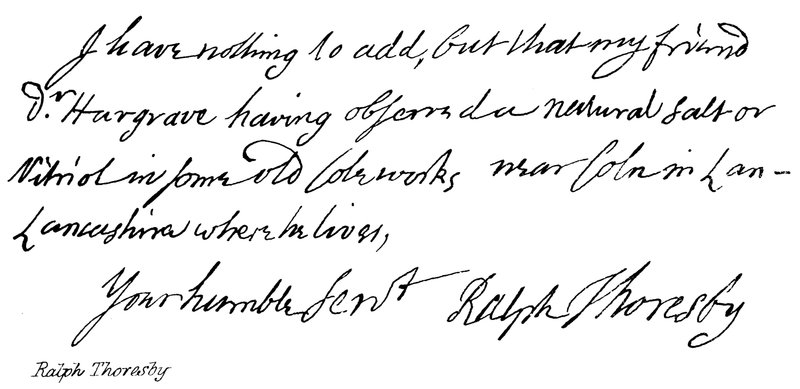 I have nothing to add, but that my friend
Dr Hargrave having observed a natural salt or
Vitriol in some old Coleworks near Coln in Lan-
Lancashire where he lives,
Your humble Servt Ralph Thoresby
Ralph Thoresby